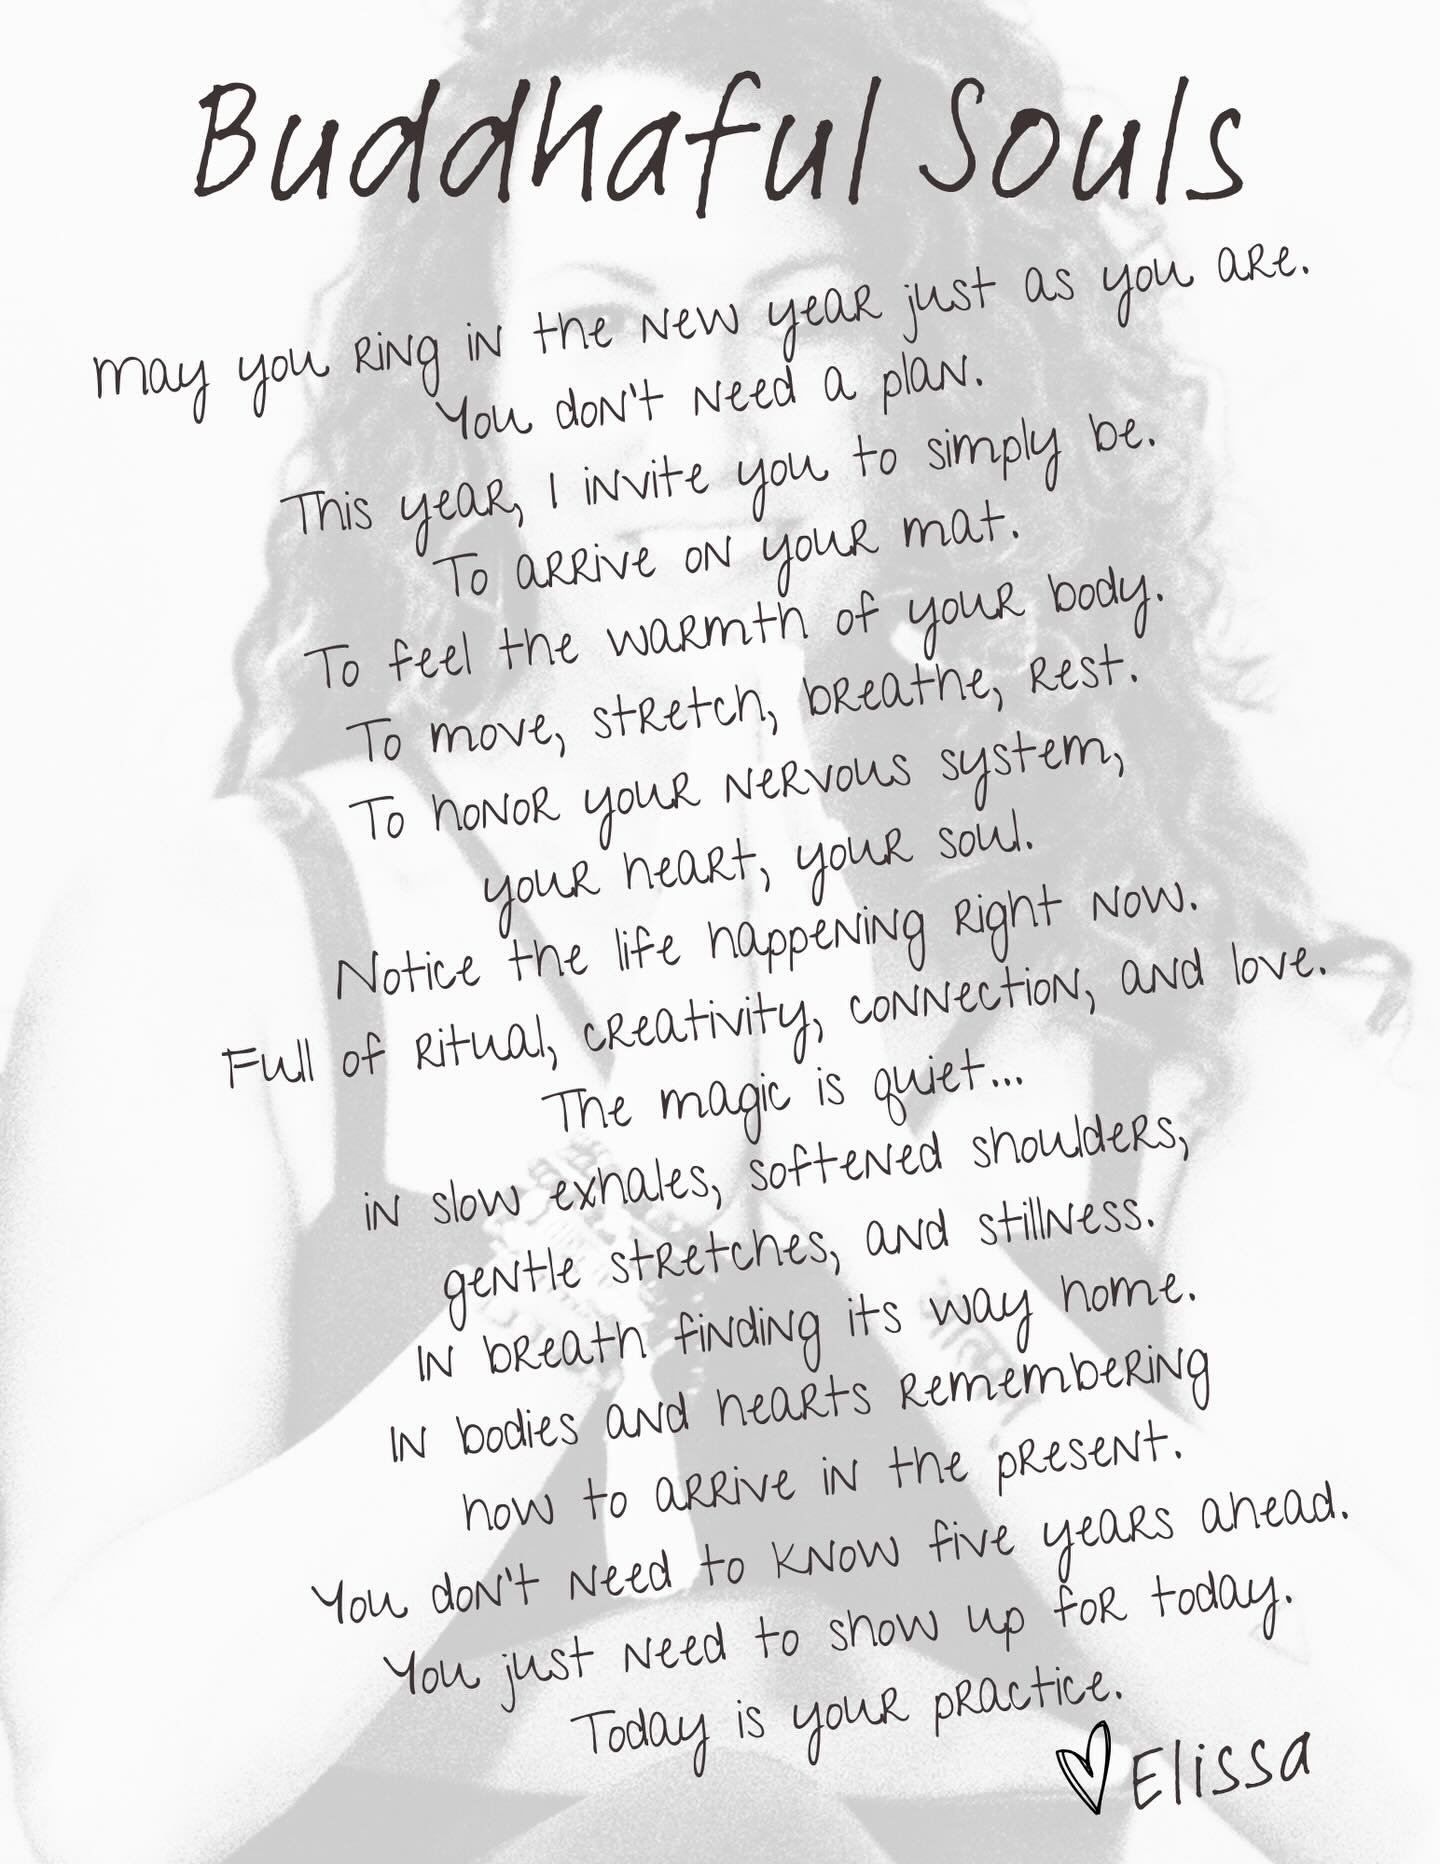 Buddhaful Souls
may you ring in the new year just as you are.
You don't need a plan.
This year, I invite you to simply be.
To arrive on your mat.
To feel the warmth of your body.
To move, stretch, breathe, rest.
To honor your nervous system,
your heart, your soul.
Notice the life happening right now.
Full of ritual, creativity, connection, and love.
The magic is quiet...
in slow exhales, softened shoulders,
gentle stretches, and stillness.
In breath finding its way home.
In bodies and hearts remembering
how to arrive in the present.
You don't need to know five years ahead.
You just need to show up for today.
Today is your practice.
Elissa